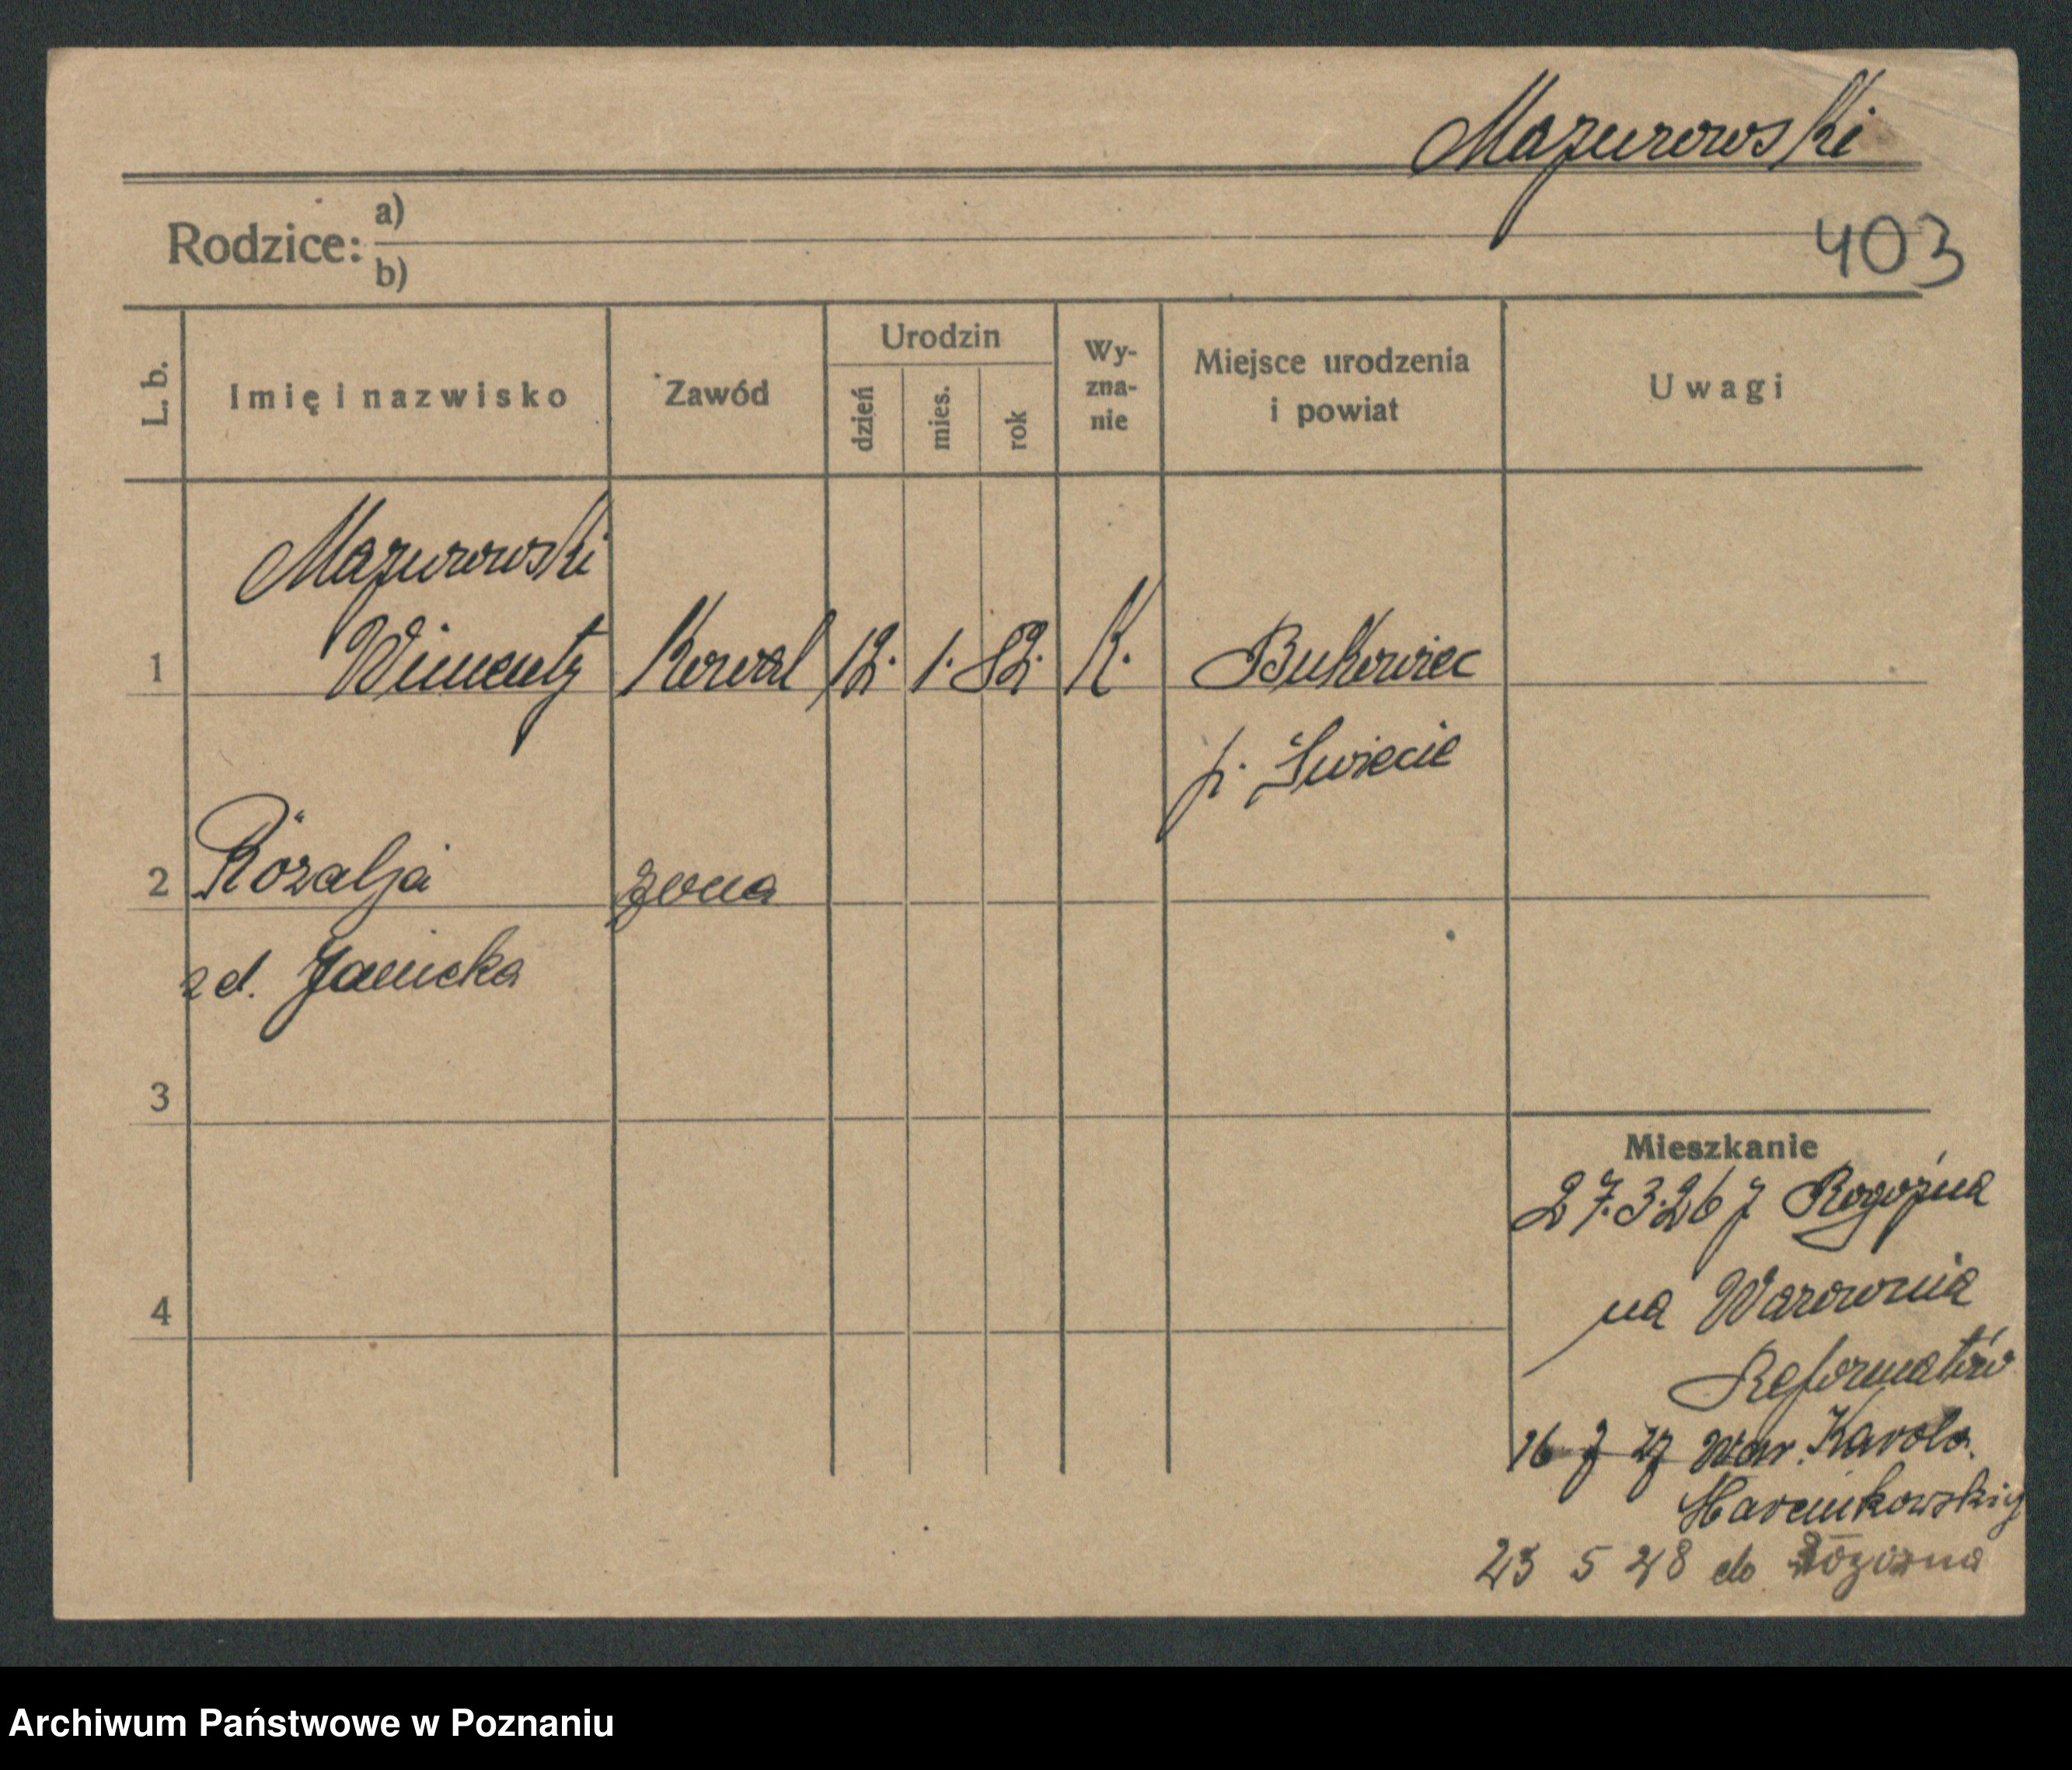 Mazurowski
403
Rodzice: a)
b)
L. b. Imię i nazwisko Zawód Urodzin dzień mies. rok Wyznanie Miejsce urodzenia i powiat Uwagi
Mazurowski
1 Wincenty Kowal 12. 1. 82. K. Bukowiec
p. Świecie
2 Rózalja żona
z d. Janicka
3
4
Mieszkanie
27.3.26 z Rogoźna
na Warownia
Reformatów
16 7 27 War. Karola
Marcinkowskig
23 5 28 do Rogozna
Archiwum Państwowe w Poznaniu